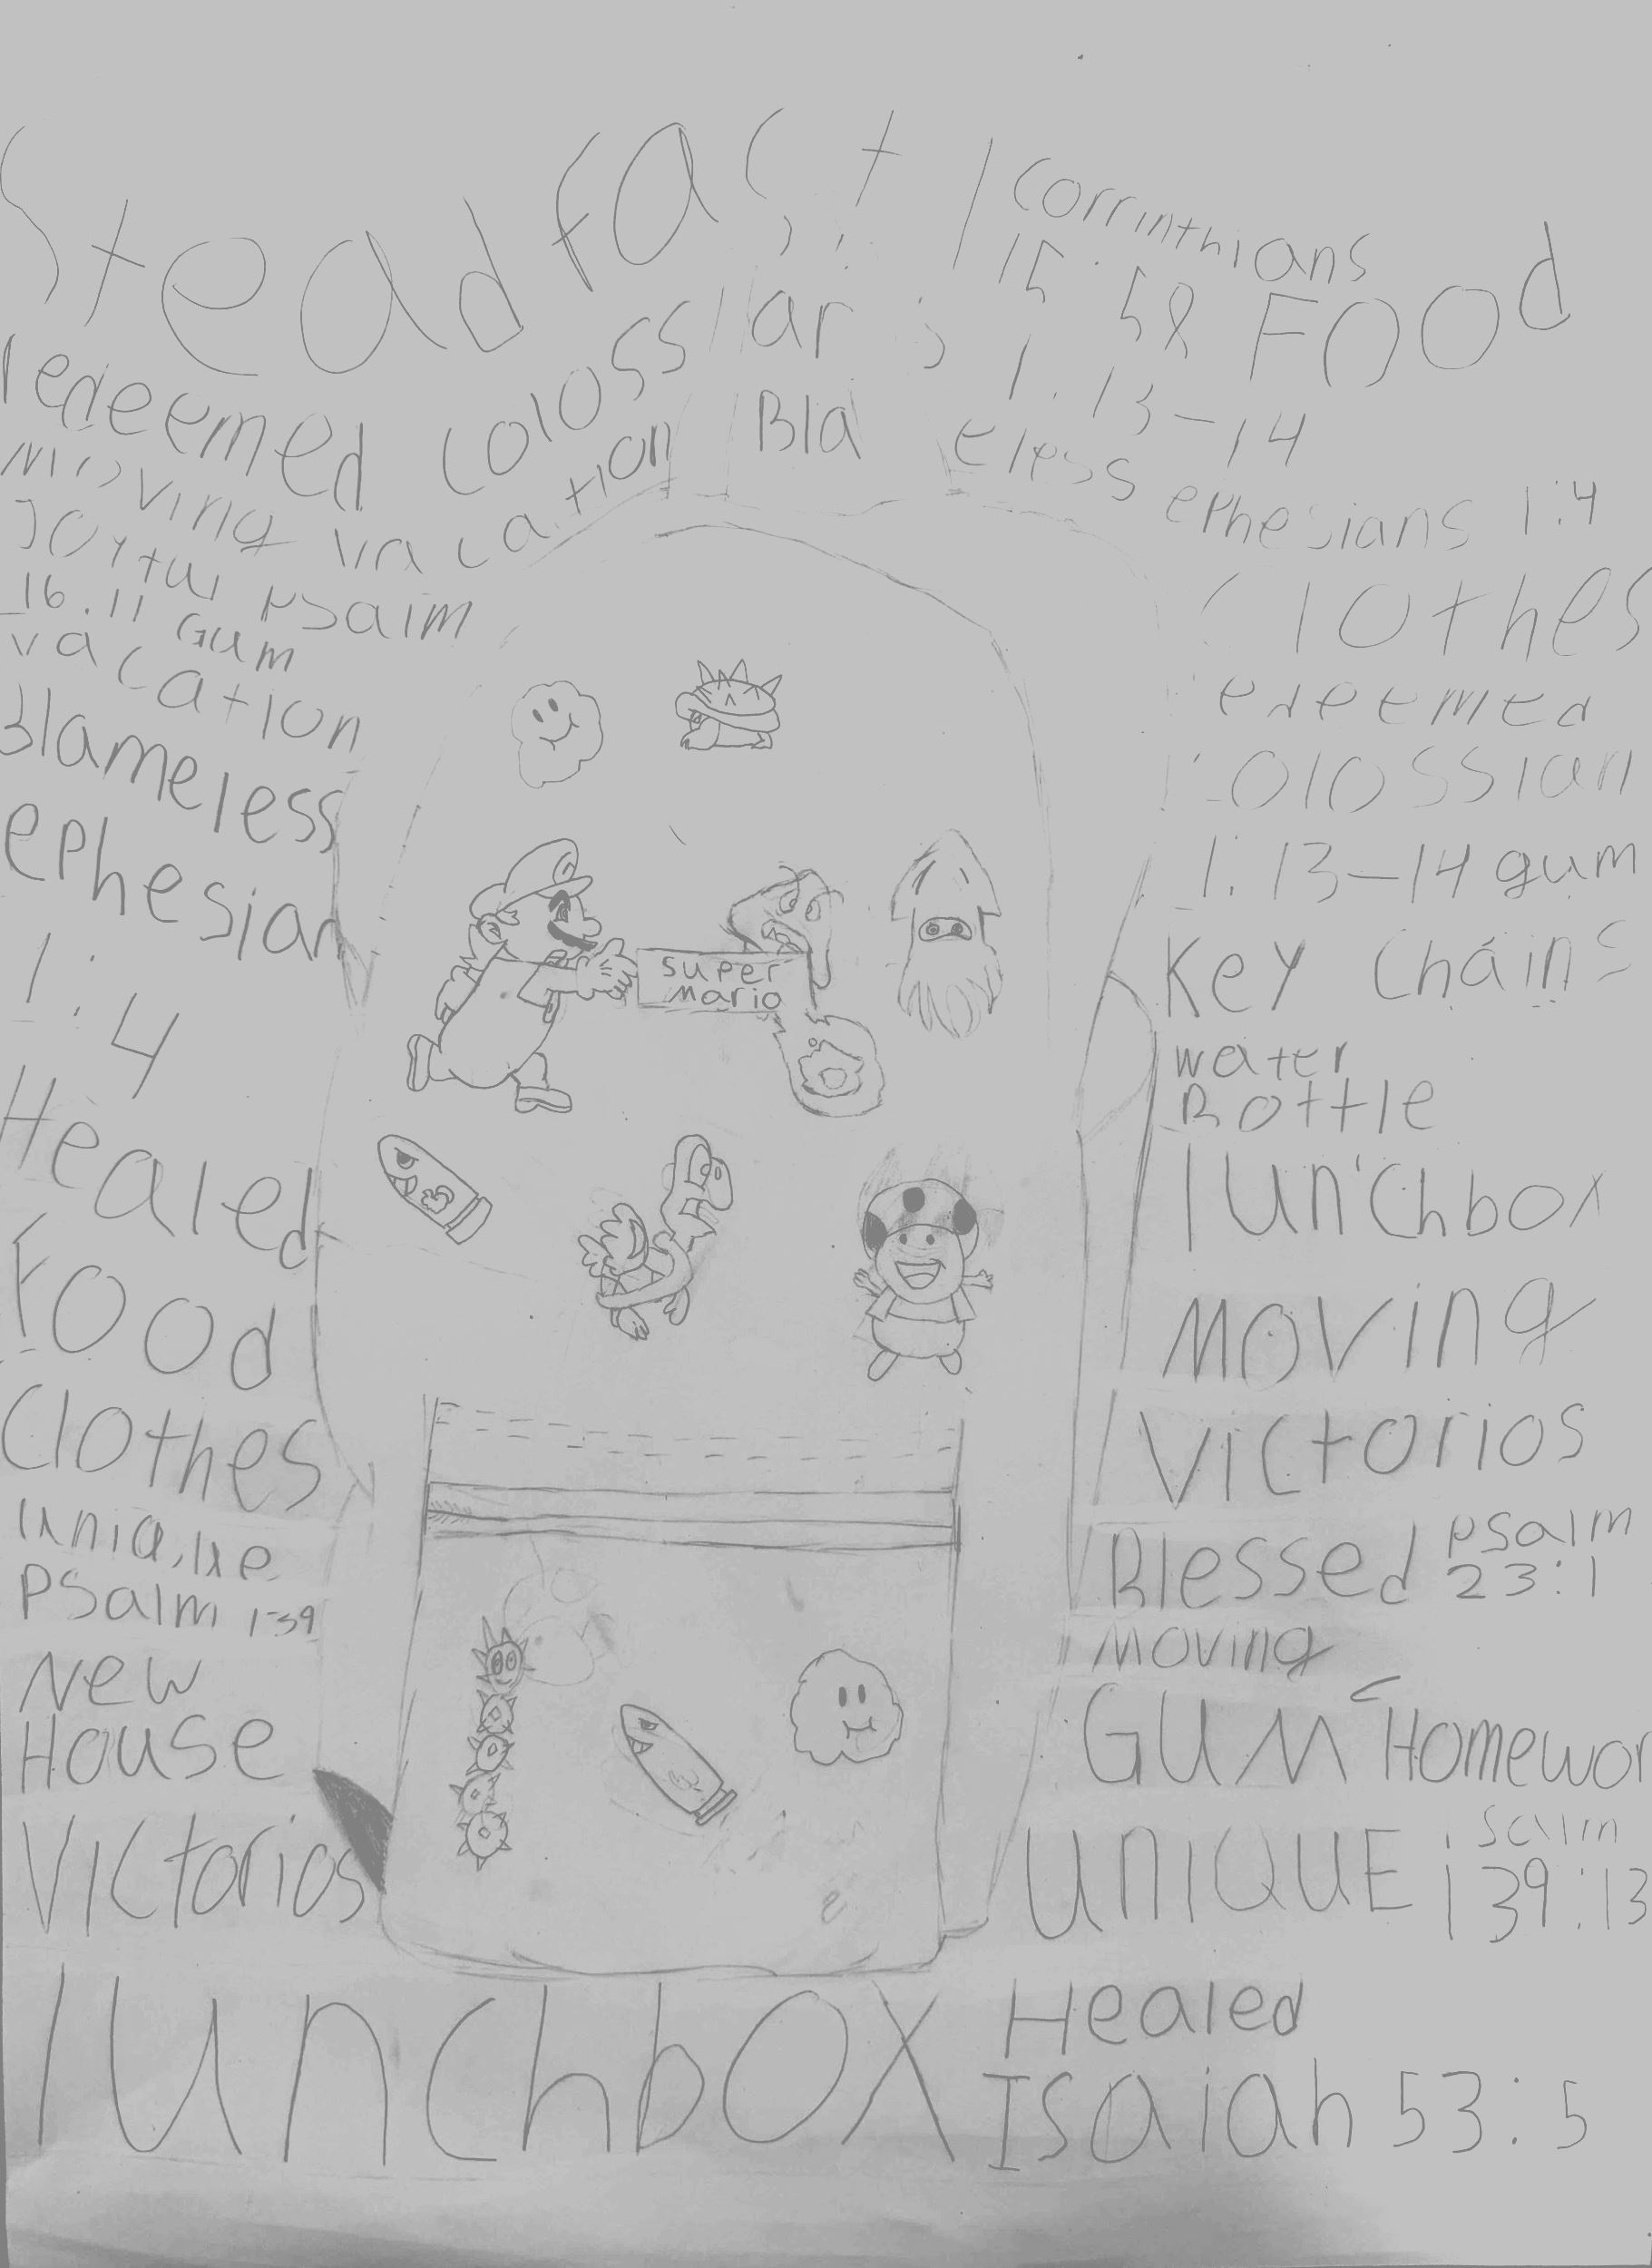 Steadfast 1 Corrinthians
15:58 Food
redeemed colossians 1.13-14
moving vacation Bla eless ephesians 1:4
Joyful psalm
16.11 Gum
vacation
Blameless
ephesian
1:4
Healed
Food
Clothes
uniq,ue
Psalm 139
New
House
Victorios
lunchbox
super
mario
lothes
edeemed
olossian
1:13-14 gum
Key Chains
water
Bottle
lunchbox
moving
Victorios
Blessed psalm
23:1
moving
GUM Homewor
UNIQUE salm
139:13
Healed
Isaiah 53:5